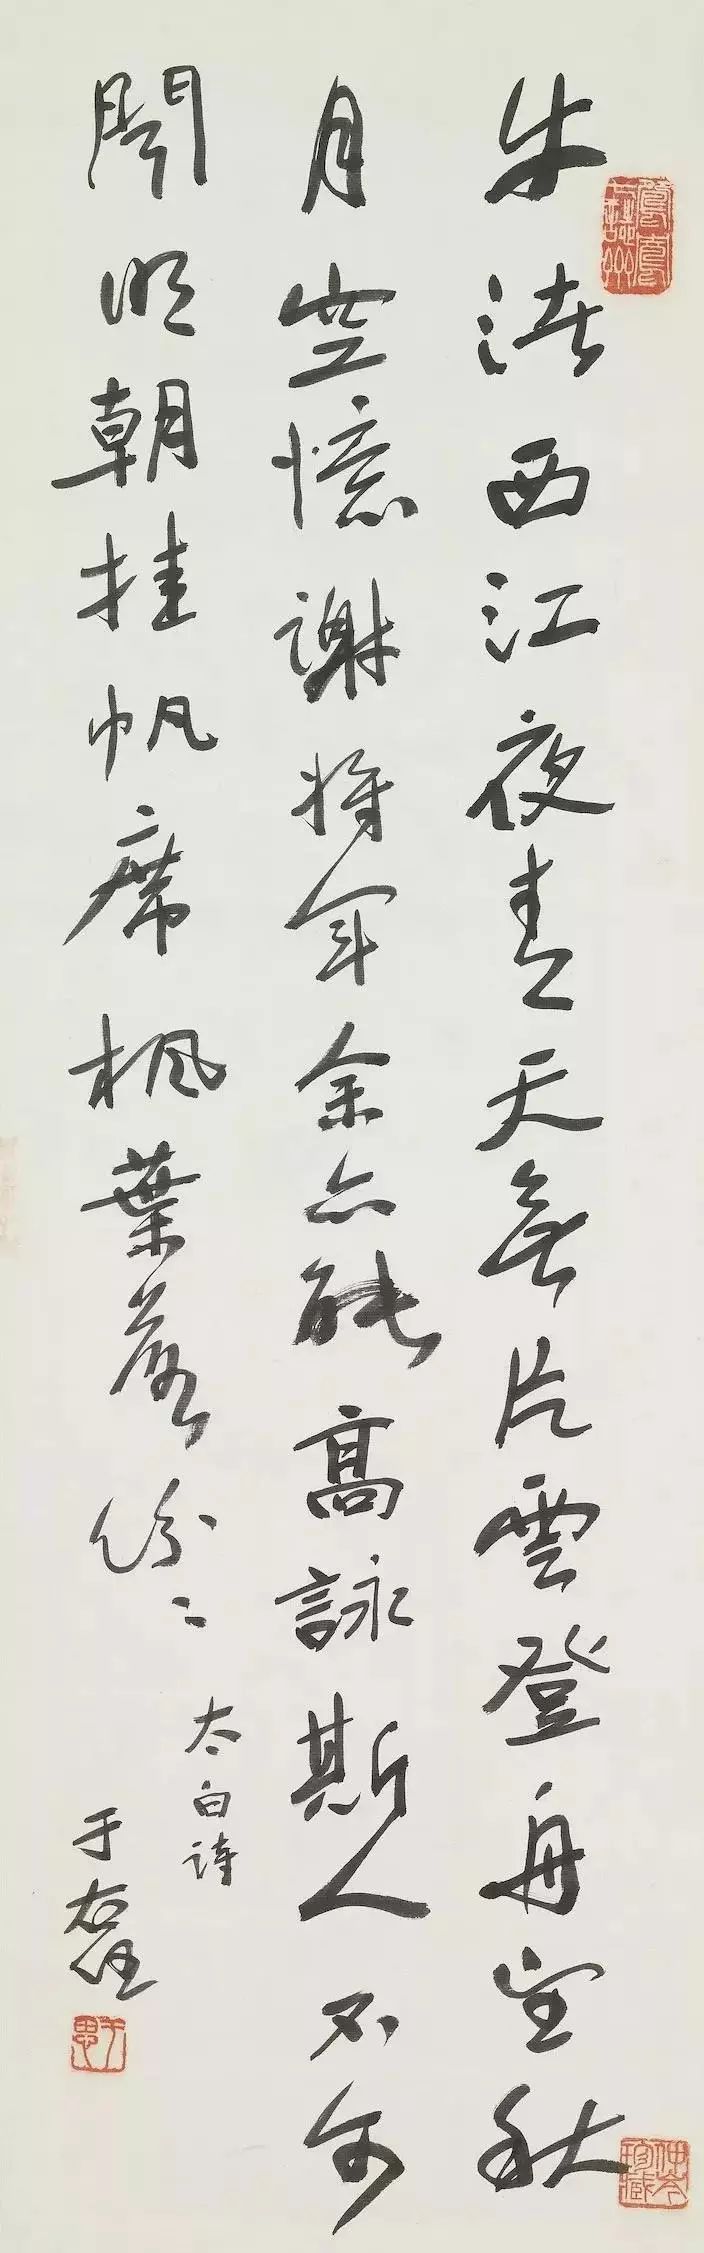 鴛鴦七誌齋
牛渚西江夜青天無片雲登舟望秋
月空憶謝將軍余亦能高詠斯人不可
聞明朝挂帆席楓葉落紛〻
太白詩
于右任